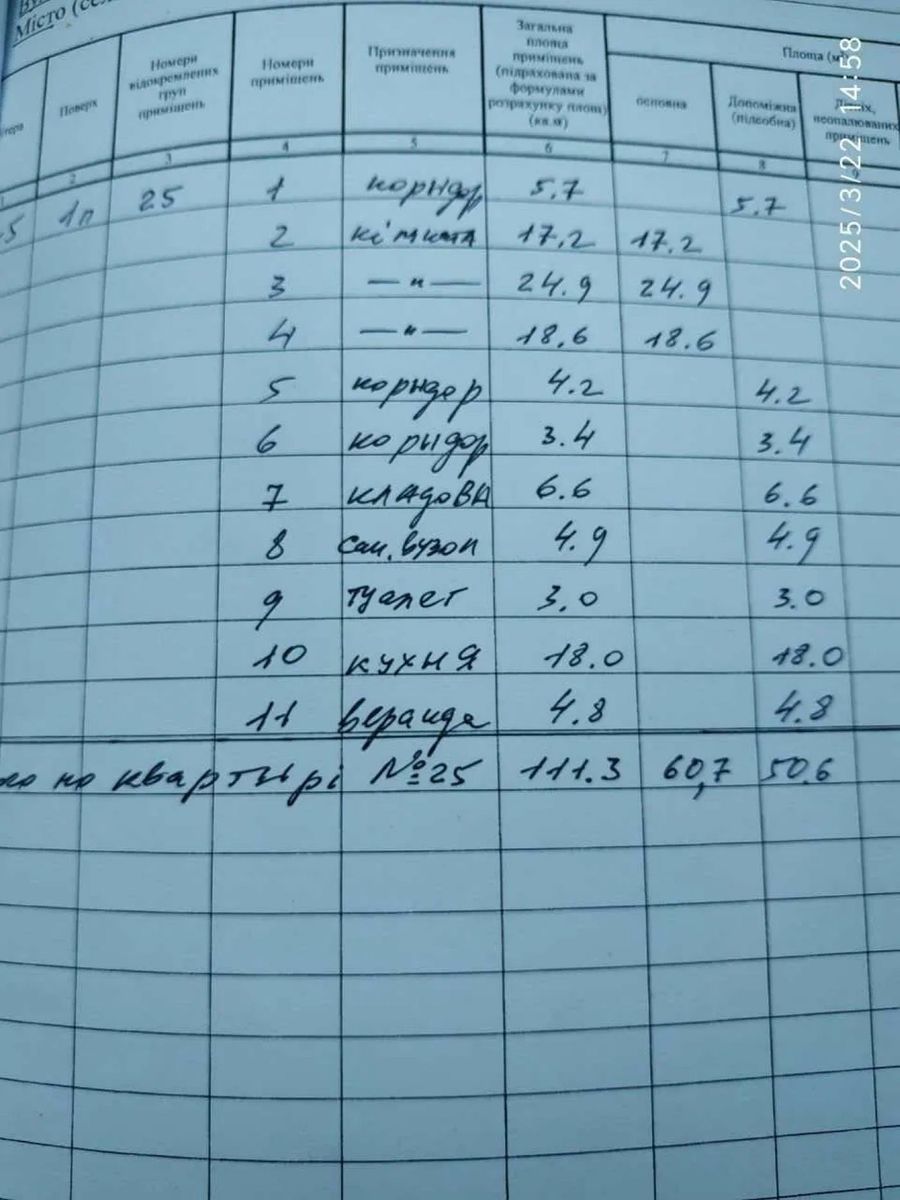 Місто (се
Поверх
Номери відокремлених груп приміщень
Номери приміщень
Призначення приміщень
Загальна площа приміщень (підрахована за формулами розрахунку площ) (кв.м)
Площа (м
основна
Допоміжна (підсобна)
неопалюваних приміщень
1 2 3 4 5 6 7 8 9
5 1п 25 1 коридор 5.7 5.7
2 кімната 17.2 17.2
3 — " — 24.9 24.9
4 — " — 18.6 18.6
5 коридор 4.2 4.2
6 корыдор 3.4 3.4
7 кладова 6.6 6.6
8 сан. вузол 4.9 4.9
9 туалет 3.0 3.0
10 кухня 18.0 18.0
11 веранда 4.8 4.8
по квартырі №25 111.3 60,7 50.6
2025/3/22 14:58